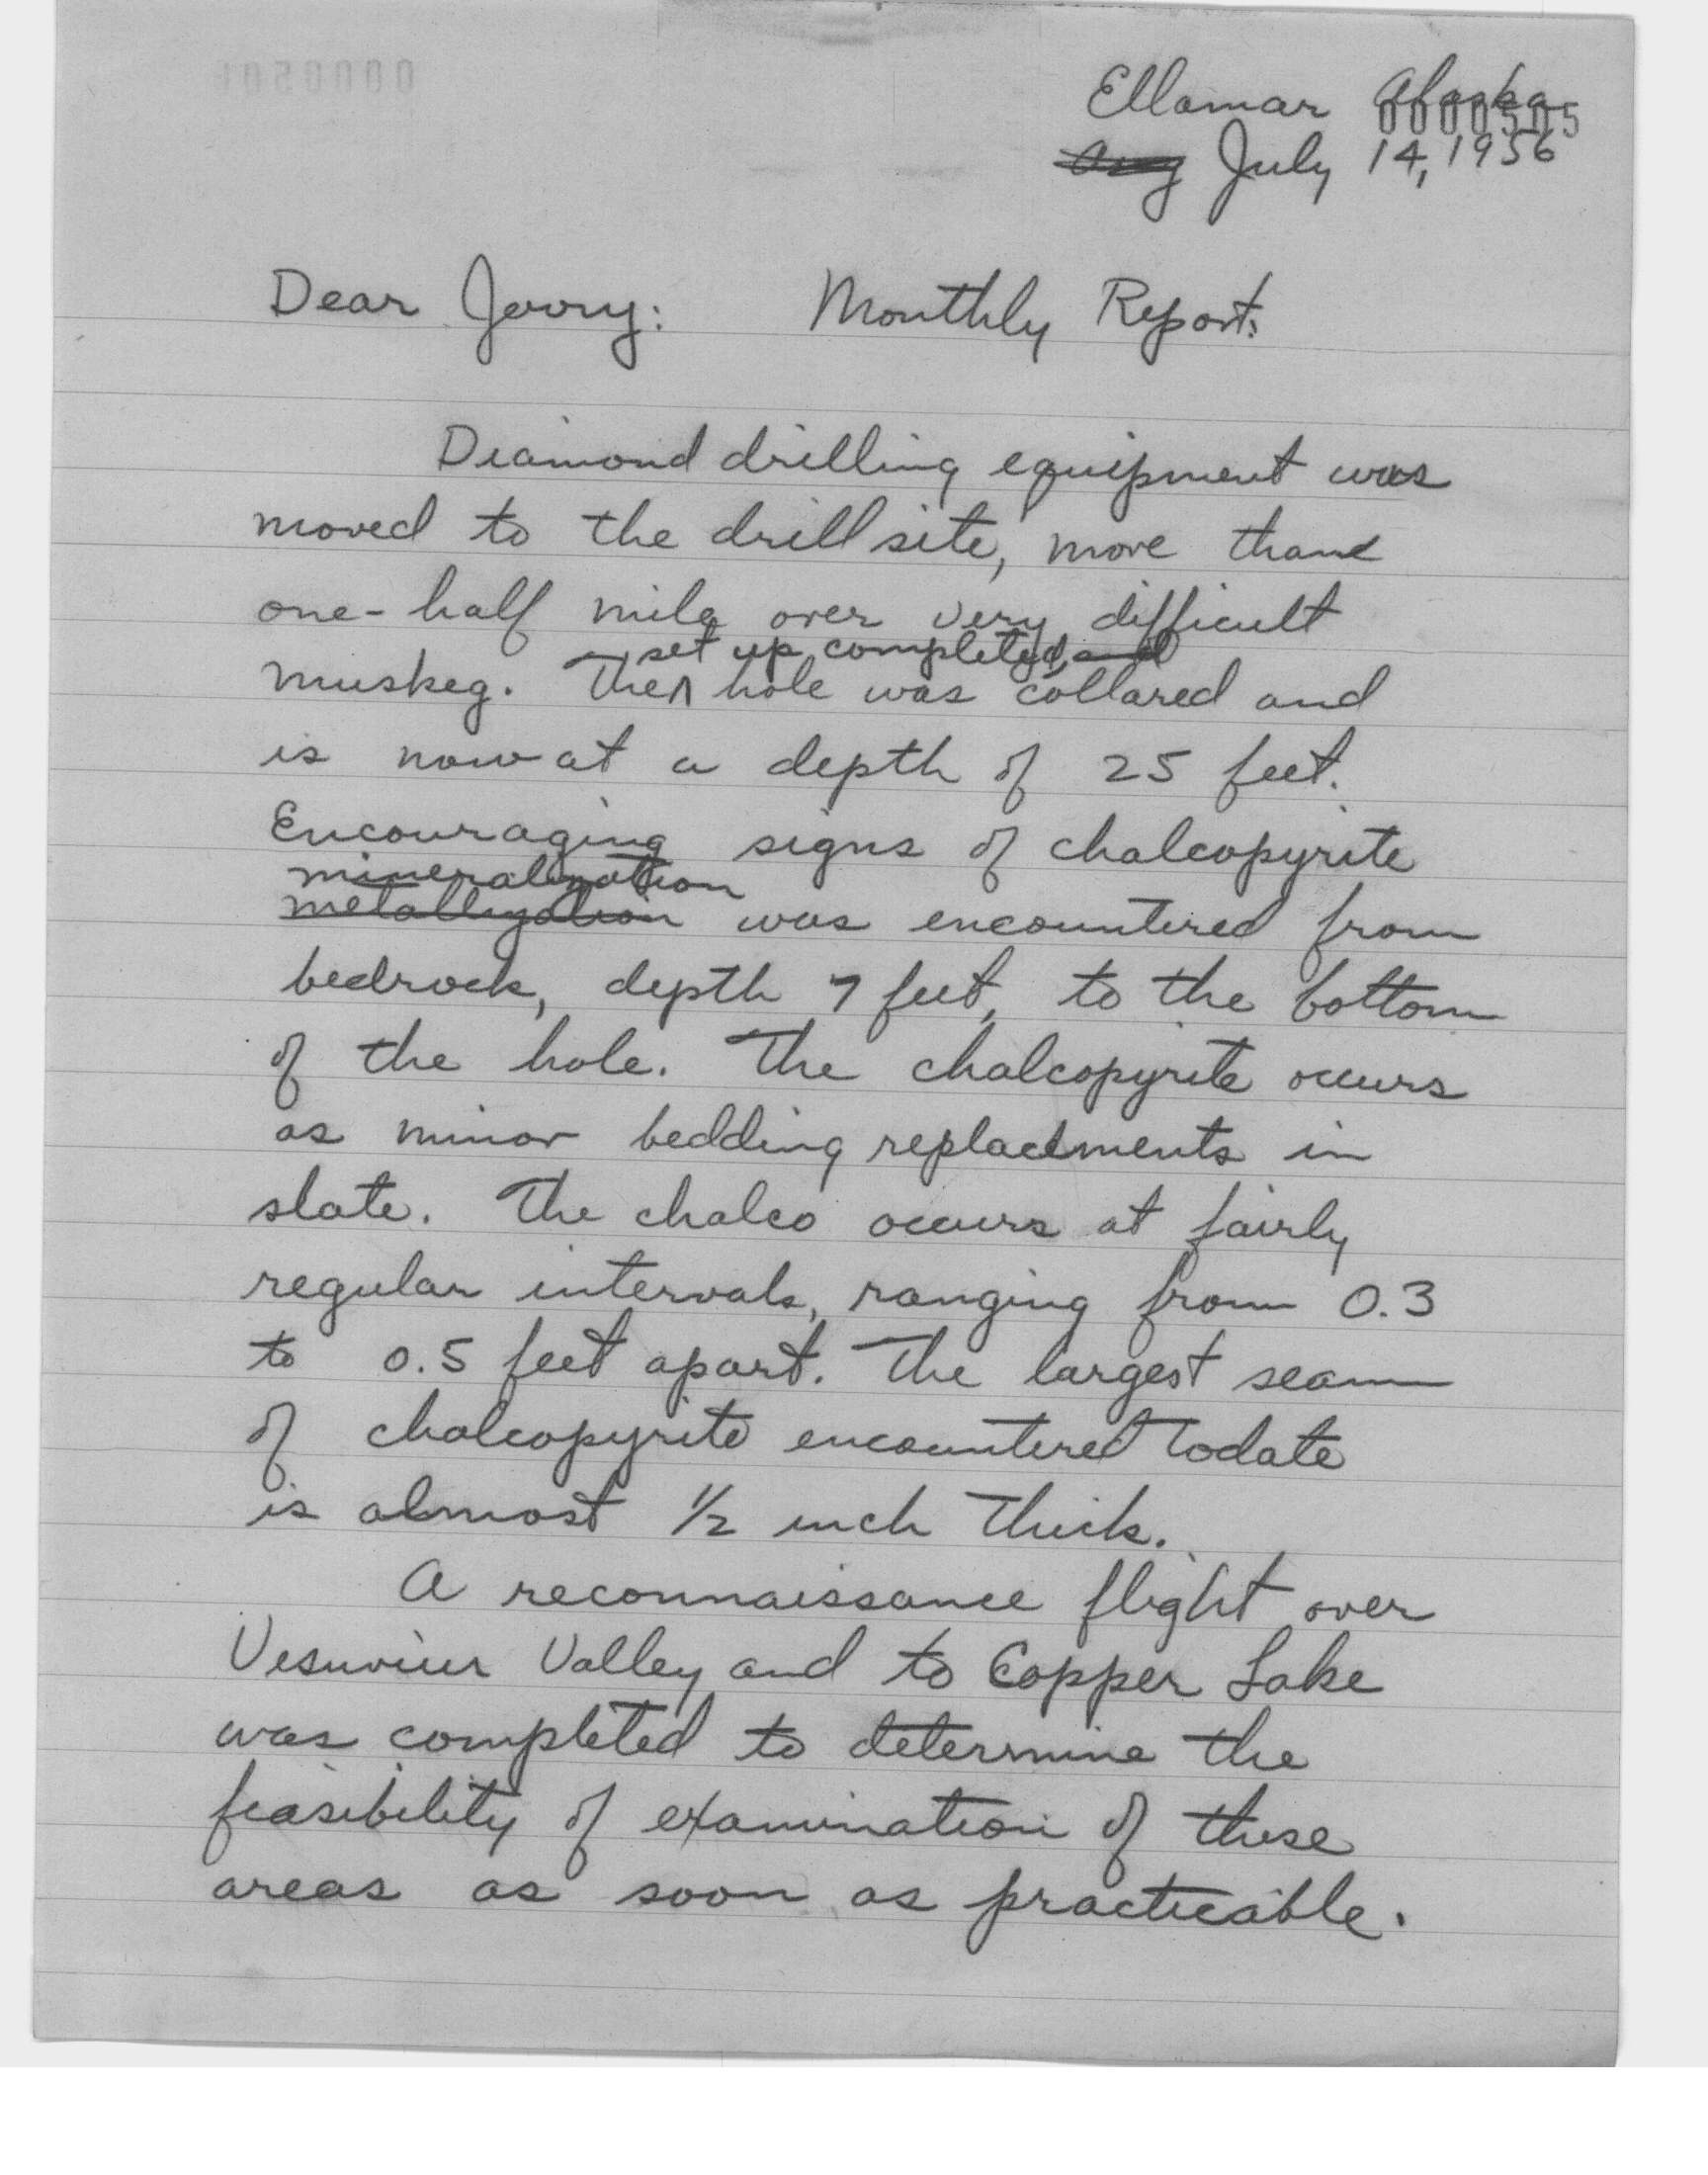 Ellamar Alaska
0000505
Aug July 14, 1956
Dear Jerry: Monthly Report:
Diamond drilling equipment was
moved to the drill site, more than
one-half mile over very difficult
set up completed, and
muskeg. The hole was collared and
is now at a depth of 25 feet.
Encouraging signs of chalcopyrite
mineralization
metallization was encountered from
bedrock, depth 7 feet, to the bottom
of the hole. The chalcopyrite occurs
as minor bedding replacements in
slate. The chalco occurs at fairly
regular intervals, ranging from 0.3
to 0.5 feet apart. The largest seam
of chalcopyrite encountered todate
is almost 1/2 inch thick.
A reconnaissance flight over
Vesuvius Valley and to Copper Lake
was completed to determine the
feasibility of examination of these
areas as soon as practicable.